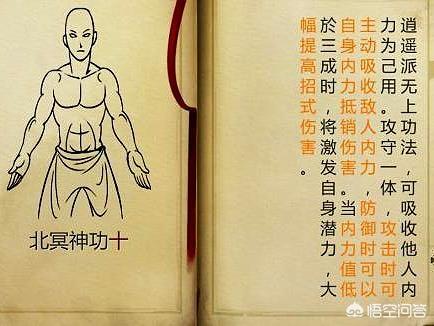 北冥神功十
逍遥派无上功法，可吸收他人内
力为己用。攻守一体，攻击时可
主动吸收敌人内力，防御时可以
自身内力抵销伤害。当内力值低
於三成时，将激发自身潜力，大
幅提高招式伤害。
悟空问答